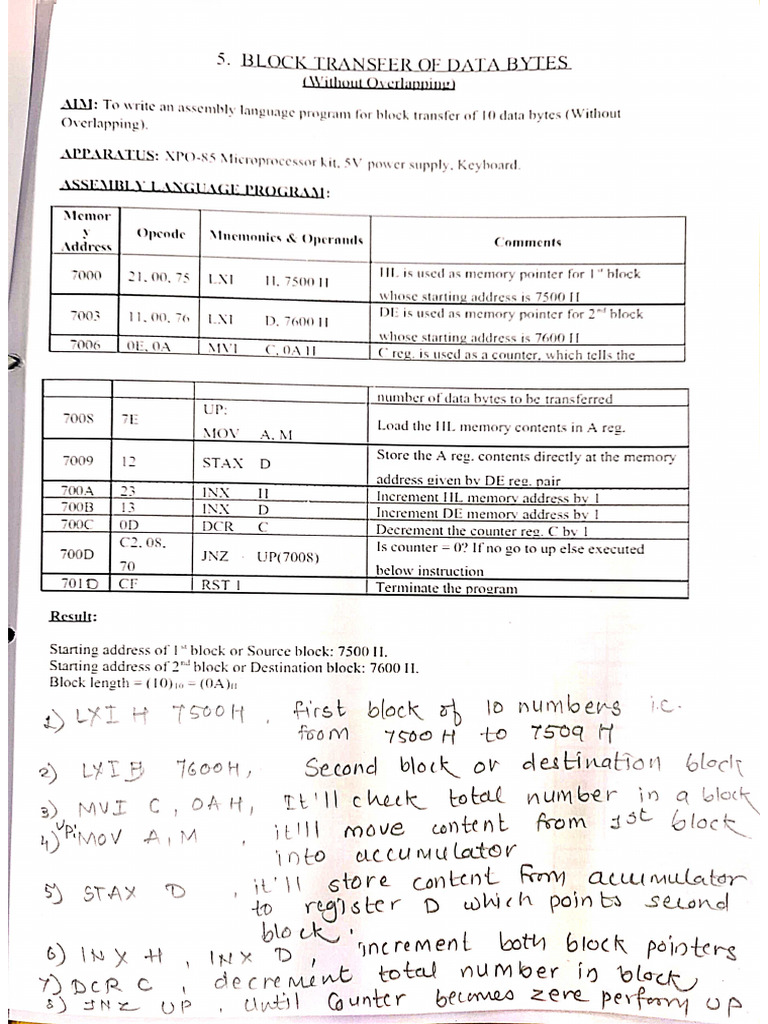 5. BLOCK TRANSFER OF DATA BYTES
(Without Overlapping)
AIM: To write an assembly language program for block transfer of 10 data bytes (Without
Overlapping).
APPARATUS: XPO-85 Microprocessor kit, 5V power supply, Keyboard.
ASSEMBLY LANGUAGE PROGRAM:
Memor
y
Address Opcode Mnemonics & Operands Comments
7000 21, 00, 75 LXI H, 7500 H HL is used as memory pointer for 1st block
whose starting address is 7500 H
7003 11, 00, 76 LXI D, 7600 H DE is used as memory pointer for 2nd block
whose starting address is 7600 H
7006 0E, 0A MVI C, 0A H C reg. is used as a counter, which tells the
number of data bytes to be transferred
7008 7E UP:
MOV A, M Load the HL memory contents in A reg.
7009 12 STAX D Store the A reg. contents directly at the memory
address given by DE reg. pair
700A 23 INX H Increment HL memory address by 1
700B 13 INX D Increment DE memory address by 1
700C 0D DCR C Decrement the counter reg. C by 1
700D C2, 08,
70 JNZ UP(7008) Is counter = 0? If no go to up else executed
below instruction
701D CF RST 1 Terminate the program
Result:
Starting address of 1st block or Source block: 7500 H.
Starting address of 2nd block or Destination block: 7600 H.
Block length = (10)10 = (0A)H
1) LXI H 7500H, first block of 10 numbers i.e.
from 7500 H to 7509 H
2) LXI B 7600H, Second block or destination block
3) MVI C, OAH, It'll check total number in a block
4) UP: MOV A, M, it'll move content from 1st block
into accumulator
5) STAX D, it'll store content from accumulator
to register D which points second
block.
6) INX H, INX D, increment both block pointers
7) DCR C, decrement total number in block
8) JNZ UP, Until Counter becomes zero perform UP